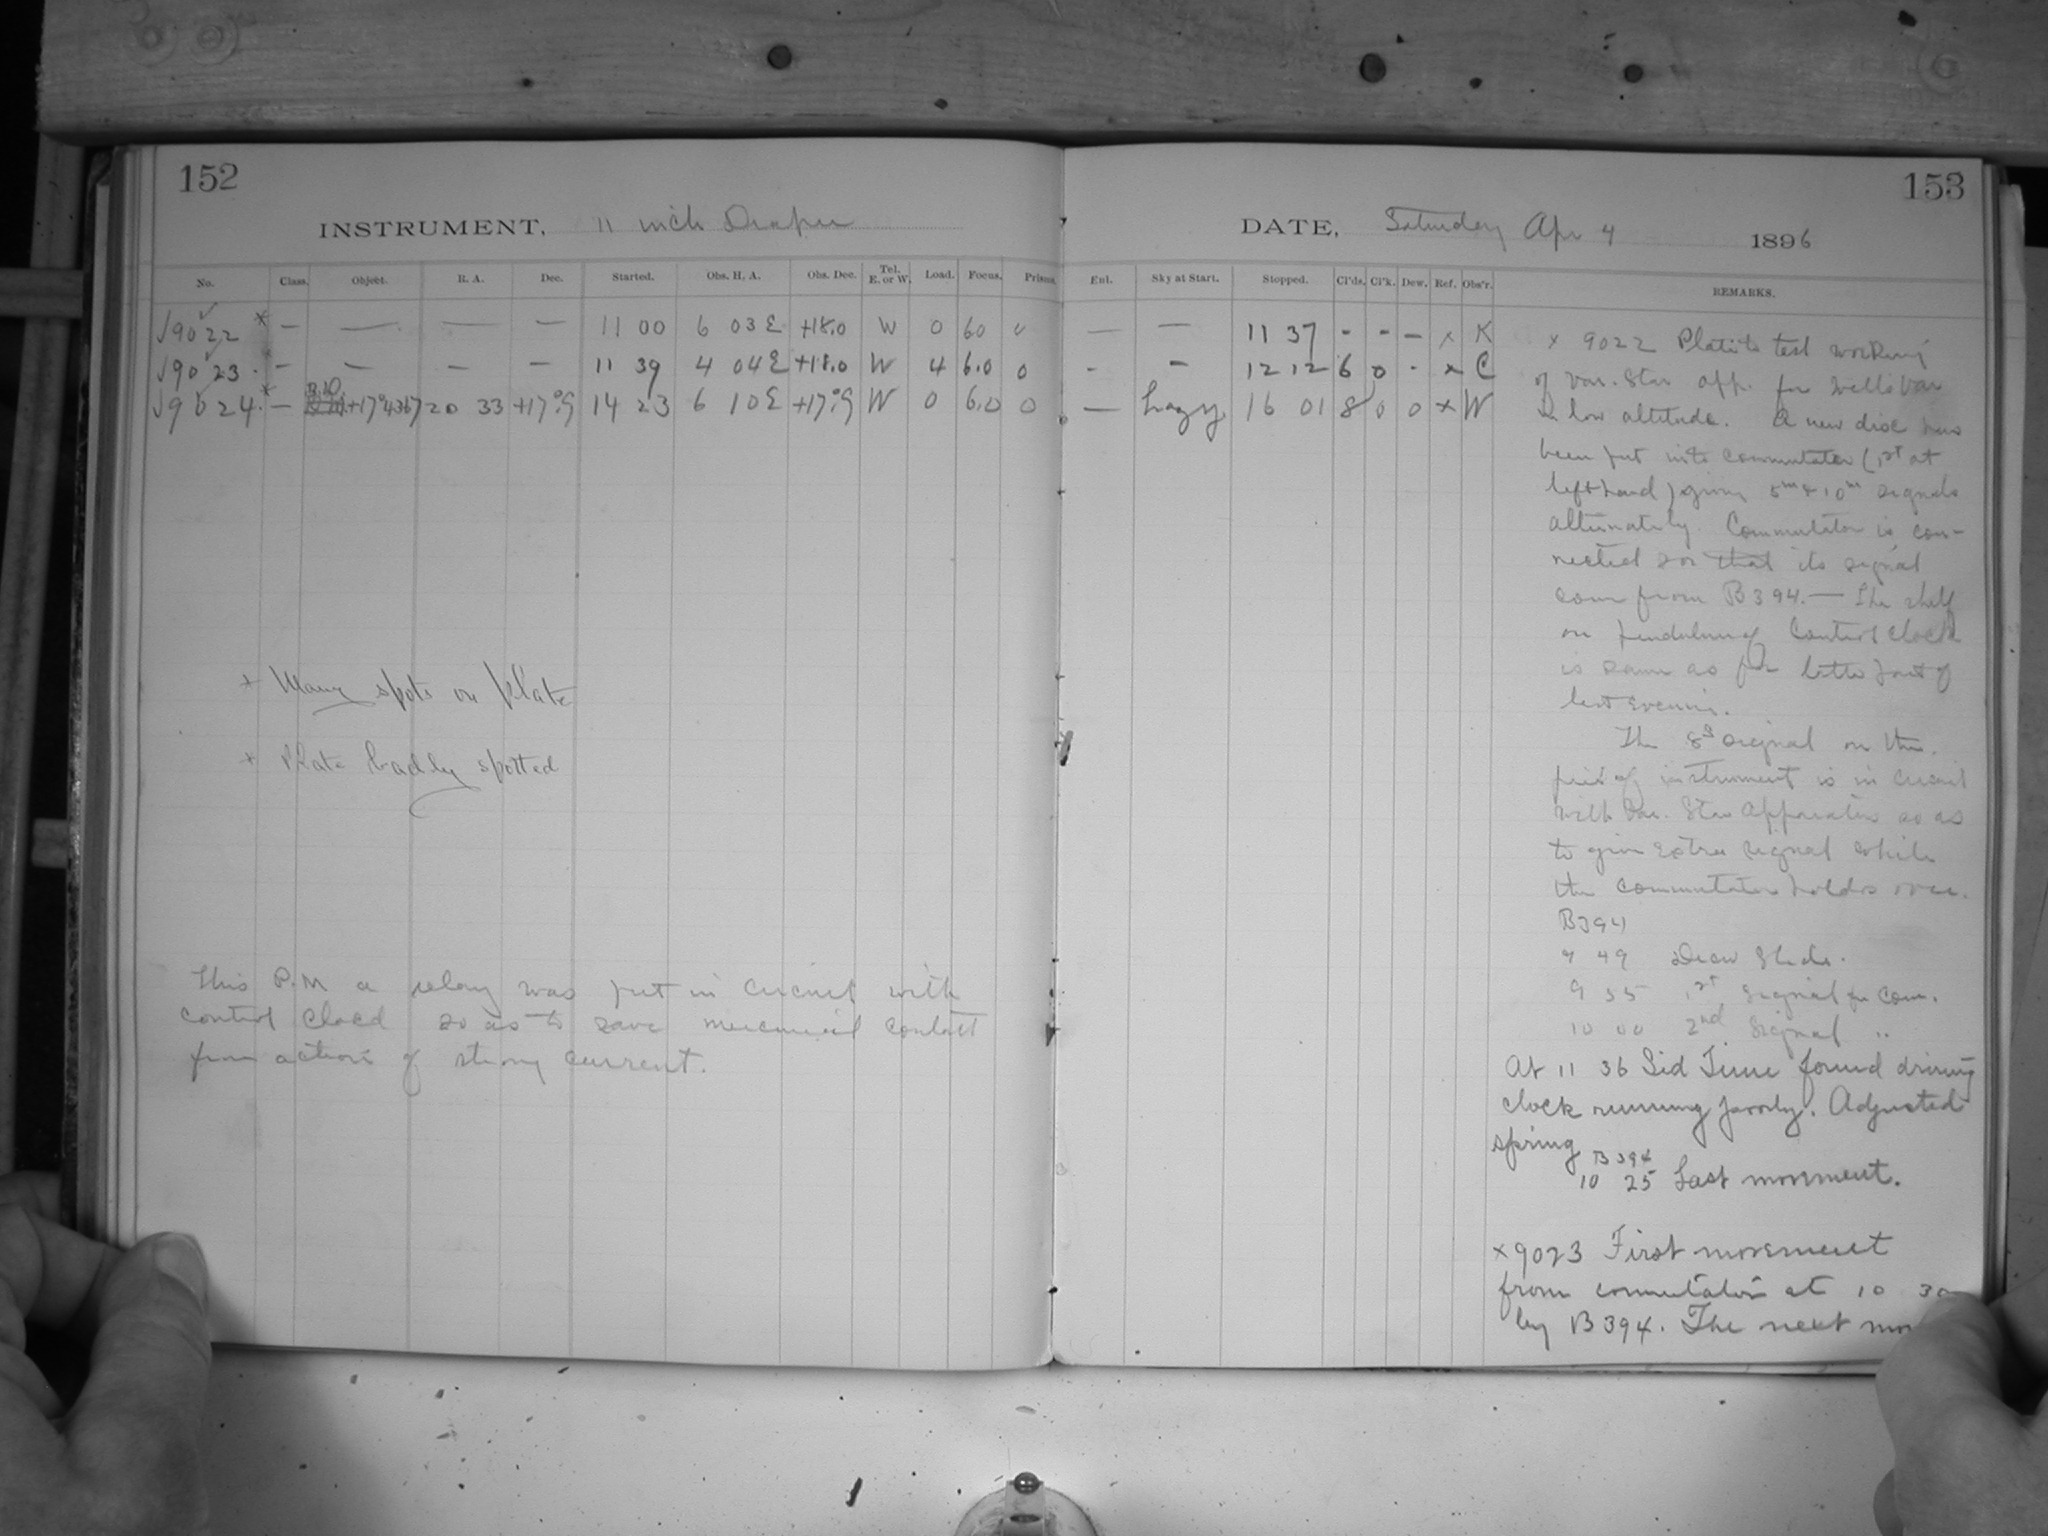 152
INSTRUMENT, 11 inch Draper
No. Class. Object. R. A. Dec. Started. Obs. H. A. Obs. Dec. Tel. E. or W. Load. Focus. Prisms.
J9022 * — — — — 11 00 6 03 E +18.0 W 0 60 0
J9023 * — — — — 11 39 4 04 E +18.0 W 4 6.0 0
J9024 * — +17°4367 20 33 +17°.9 14 23 6 10 E +17°.9 W 0 6.0 0
+ Many spots on plate
+ Plate badly spotted
This P.M a relay was put in circuit with
control clock so as to save mercurial contact
from action of strong current.
153
DATE, Saturday Apr 4 1896
Enl. Sky at Start. Stopped. Cl'ds. Cl'k. Dew. Ref. Obs'r. REMARKS.
— — 11 37 - - — x K
- - 12 12 6 0 - x C
— hazy 16 01 8 0 0 x W
x 9022 Plate to test working
of Var. Star app. for Wells Var
in low altitude. A new disc has
been put into commutator (1st at
left hand) giving 5m & 10m signals
alternately. Commutator is con-
nected so that its signal
come from B394. — The shelf
on pendulum of Control Clock
is same as for latter part of
last evening.
The 8s signal on the
pier of instrument is in circuit
with Var. Star Apparatus so as
to give extra signal while
the commutator holds over.
B394
9 49 Drew Slide.
9 55 1st Signal for Com.
10 00 2nd Signal "
At 11 36 Sid Time found driving
clock running poorly. Adjusted
spring
B394
10 25 Last movement.
x 9023 First movement
from commutator at 10 30
by B394. The next